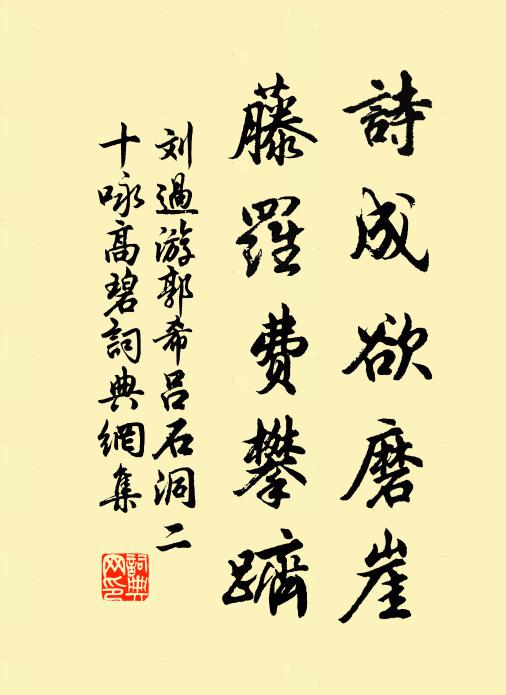 詩成欲磨崖
藤羅費攀躋
刘過游郭希呂石洞二
十咏高碧詞典網集
詞典
网印